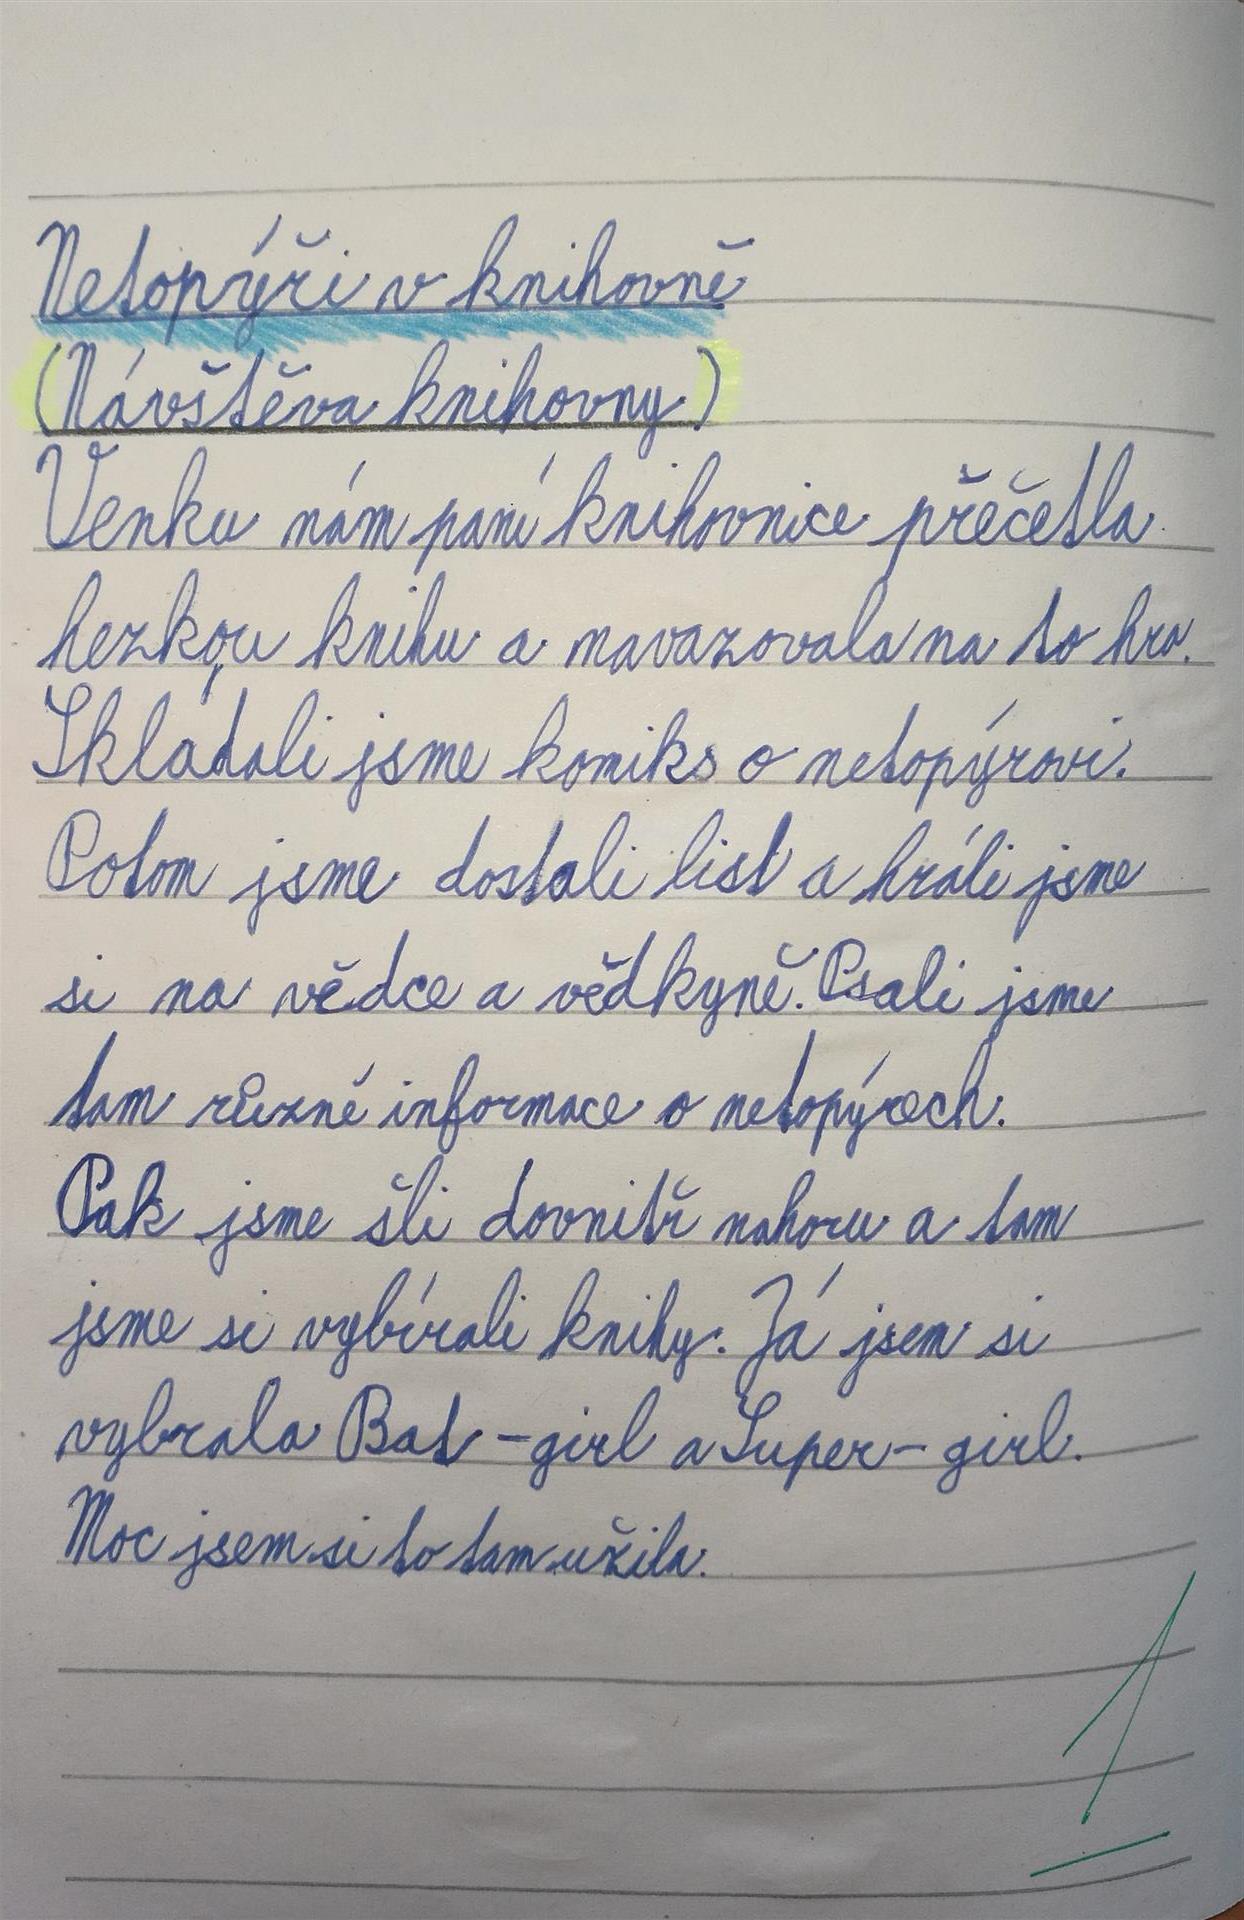 Netopýři v knihovně
(Návštěva knihovny)
Venku nám paní knihovnice přečetla
hezkou knihu a navazovala na to hra.
Skládali jsme komiks o netopýrovi.
Potom jsme dostali list a hráli jsme
si na vědce a vědkyně. Psali jsme
tam různé informace o netopýrech.
Pak jsme šli dovnitř nahoru a tam
jsme si vybírali knihy. Já jsem si
vybrala Bat-girl a Super-girl.
Moc jsem si to tam užila.
1